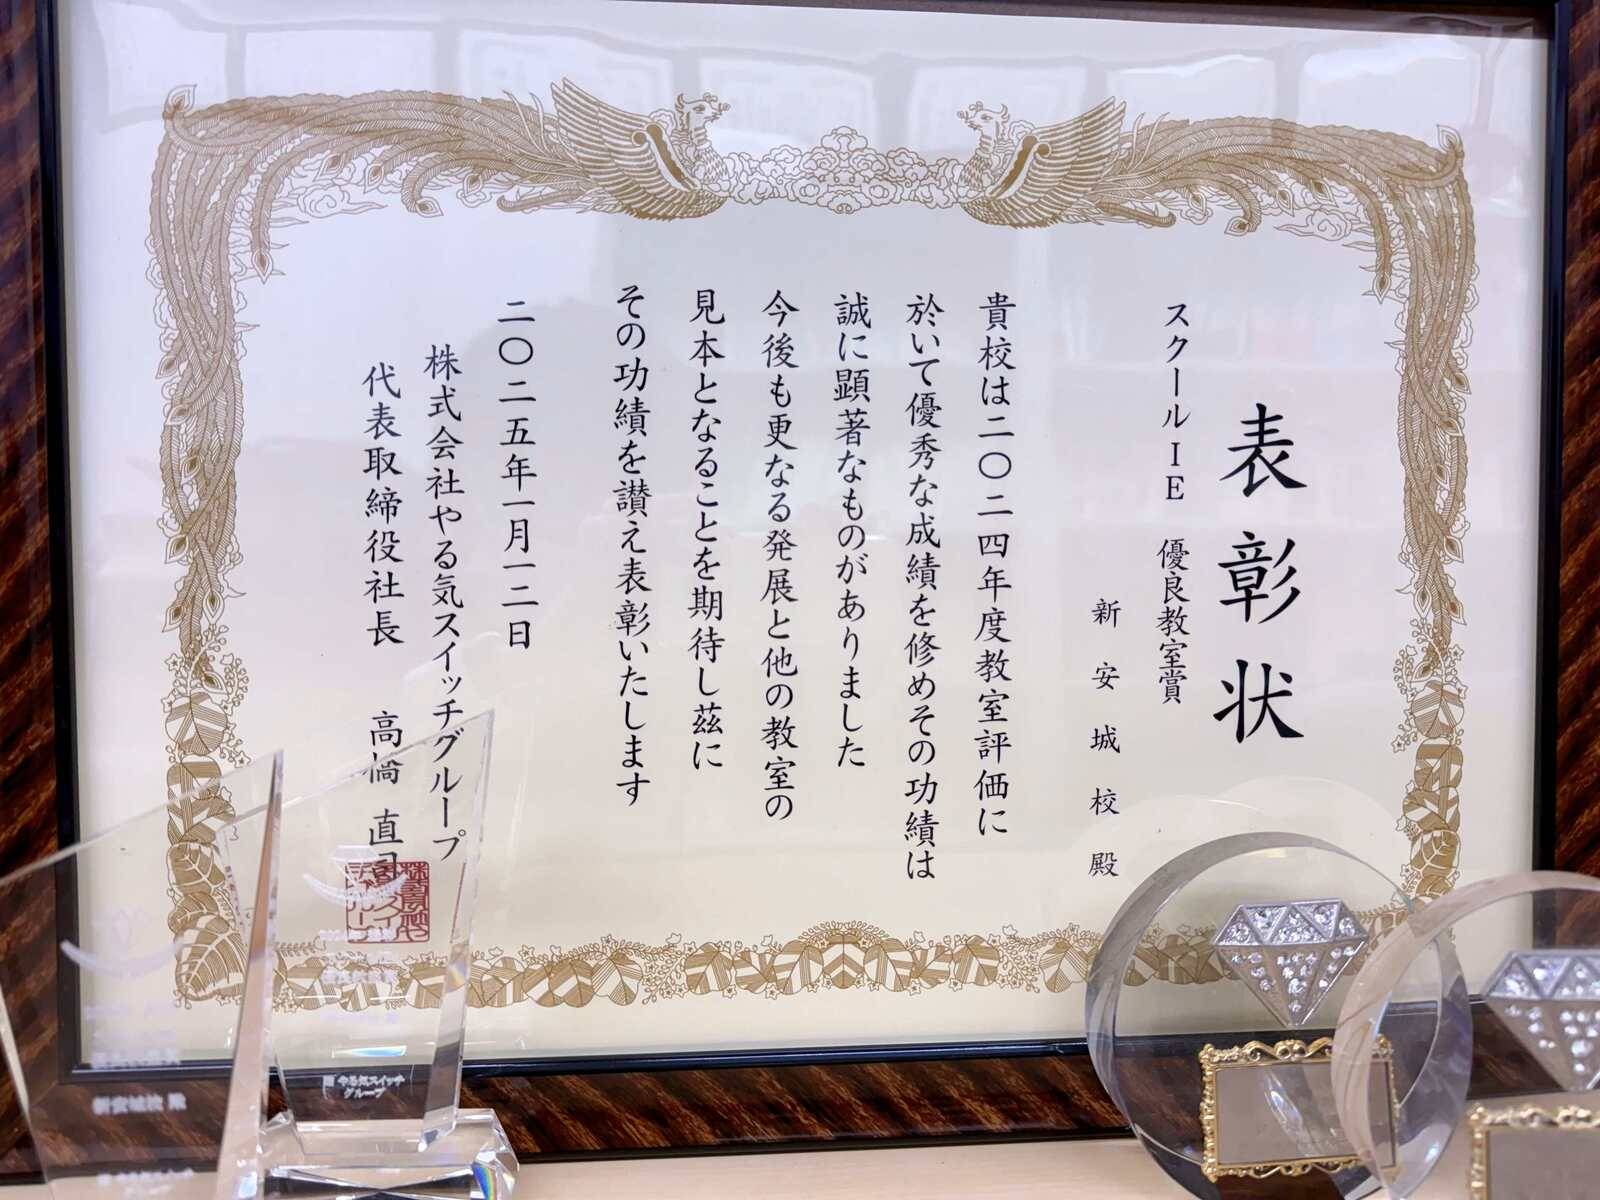 表彰状
スクールIE 優良教室賞
新安城校殿
貴校は二〇二四年度教室評価に
於いて優秀な成績を修めその功績は
誠に顕著なものがありました
今後も更なる発展と他の教室の
見本となることを期待し茲に
その功績を讃え表彰いたします
二〇二五年一月一二日
株式会社やる気スイッチグループ
代表取締役社長 高橋 直司
新安城校 殿
やる気スイッチ
グループ